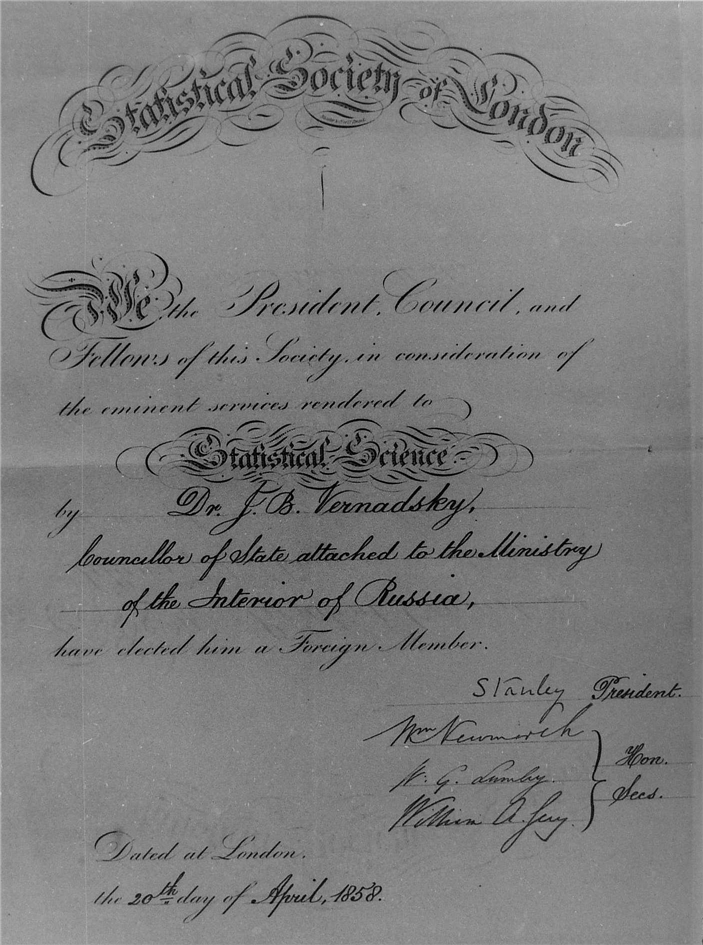 Statistical Society of London
We the President, Council, and
Fellows of this Society, in consideration of
the eminent services rendered to
Statistical Science
by Dr. J. B. Vernadsky,
Councillor of State attached to the Ministry
of the Interior of Russia,
have elected him a Foreign Member.
Stanley President.
Wm Newmarch
Hon.
W. G. Lumley.
Secs.
William A. Guy.
Dated at London.
the 20th day of April, 1858.